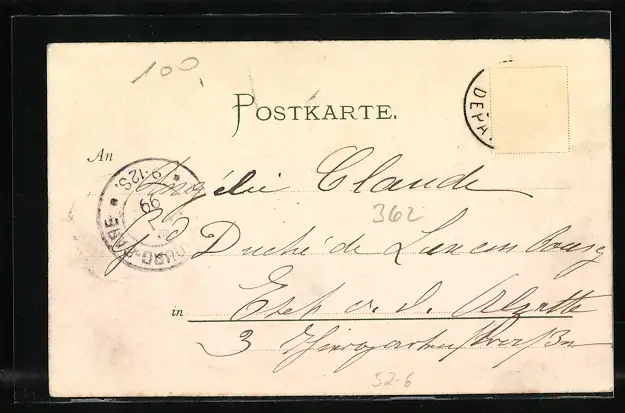 100
POSTKARTE.
DEPA
An
Angélie Claude
9-12S.
99
362
Duché de Luxembourg
in Esch a. d. Alzette
3
52-6